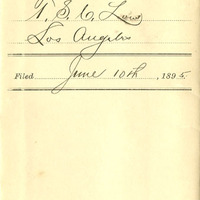 T. S. C. Lowe
Los Angeles
Filed June 10th, 1895.